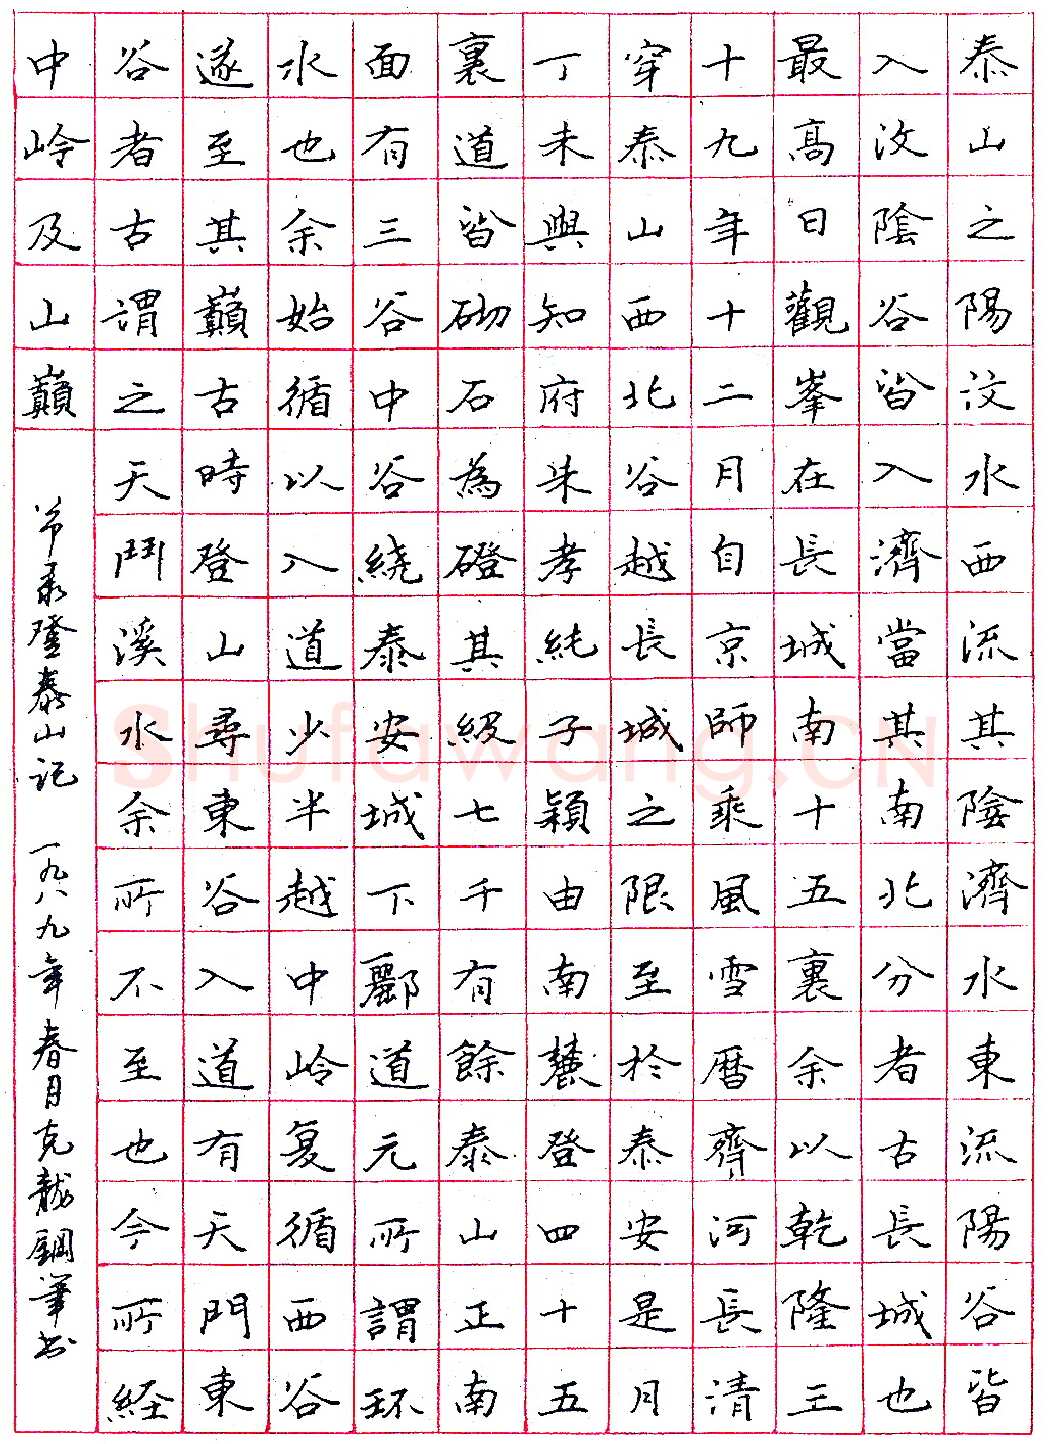 泰山之陽汶水西流其陰濟水東流陽谷皆
入汶陰谷皆入濟當其南北分者古長城也
最高日觀峯在長城南十五裏余以乾隆三
十九年十二月自京師乘風雪曆齊河長清
穿泰山西北谷越長城之限至於泰安是月
丁未與知府朱孝純子穎由南麓登四十五
裏道皆砌石為磴其級七千有餘泰山正南
面有三谷中谷繞泰安城下酈道元所謂环
水也余始循以入道少半越中岭复循西谷
遂至其巔古時登山尋東谷入道有天門東
谷者古謂之天鬥溪水余所不至也今所経
中岭及山巔
节录登泰山记 一九八九年春月克龍鋼筆书
Shufawang.CN